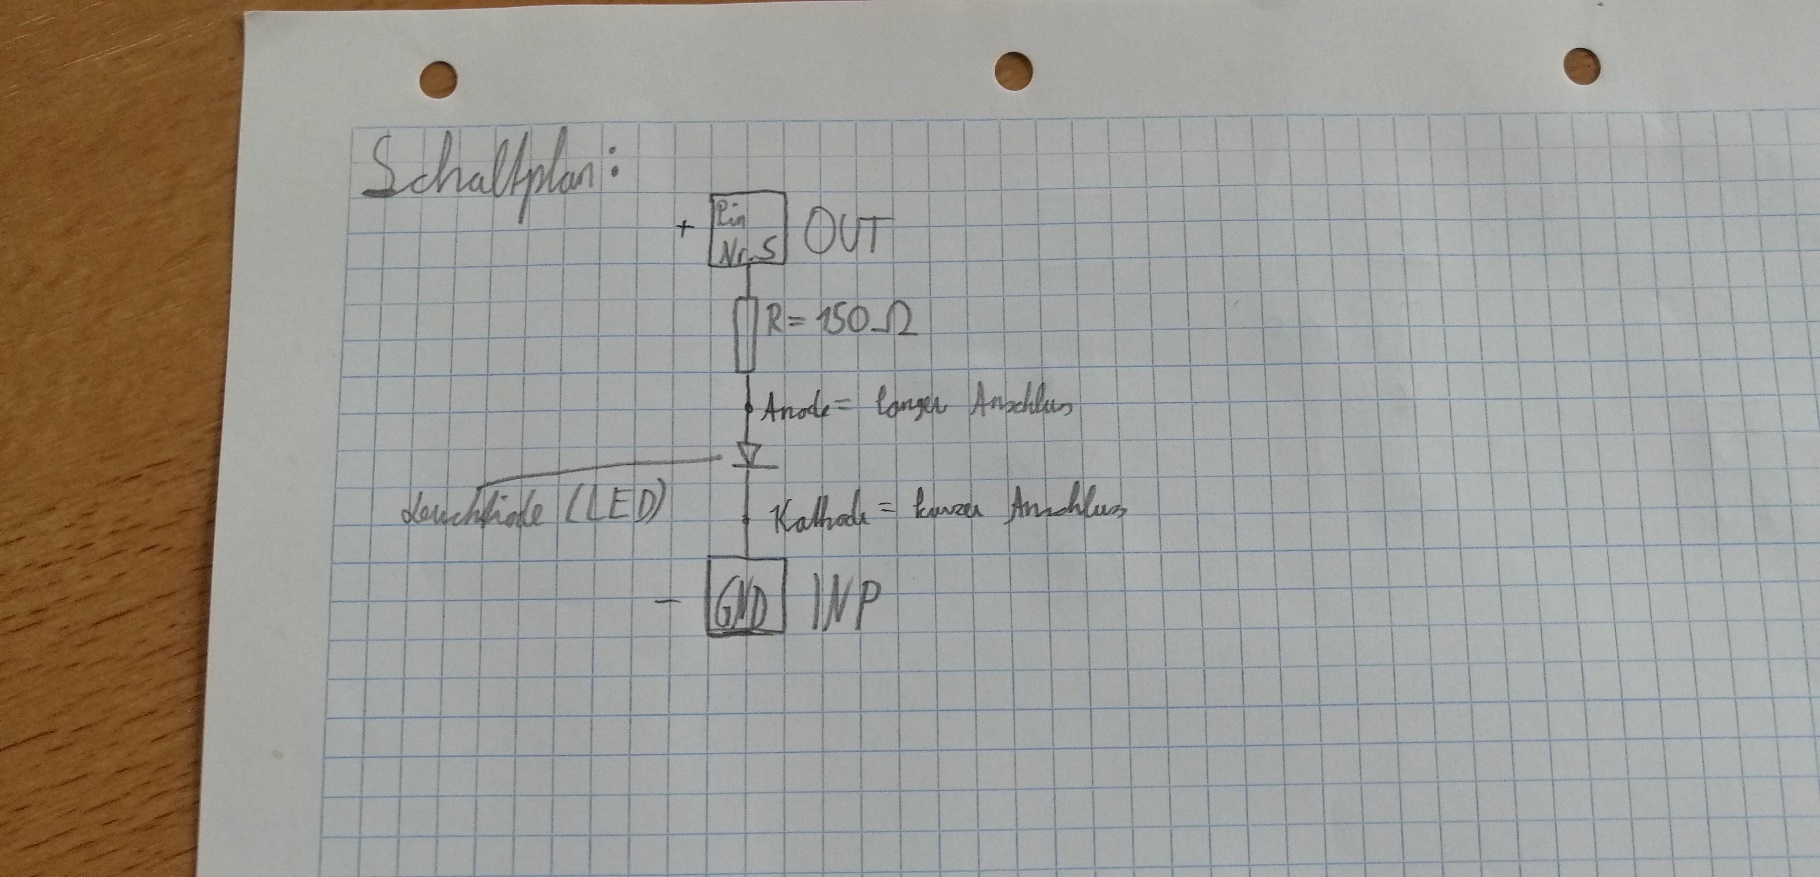 Schaltplan:
+ Pin
Nr. 5 OUT
R= 150 Ω
Anode= langer Anschluss
Leuchtiode (LED)
Kathode = kurzer Anschluss
- GND INP